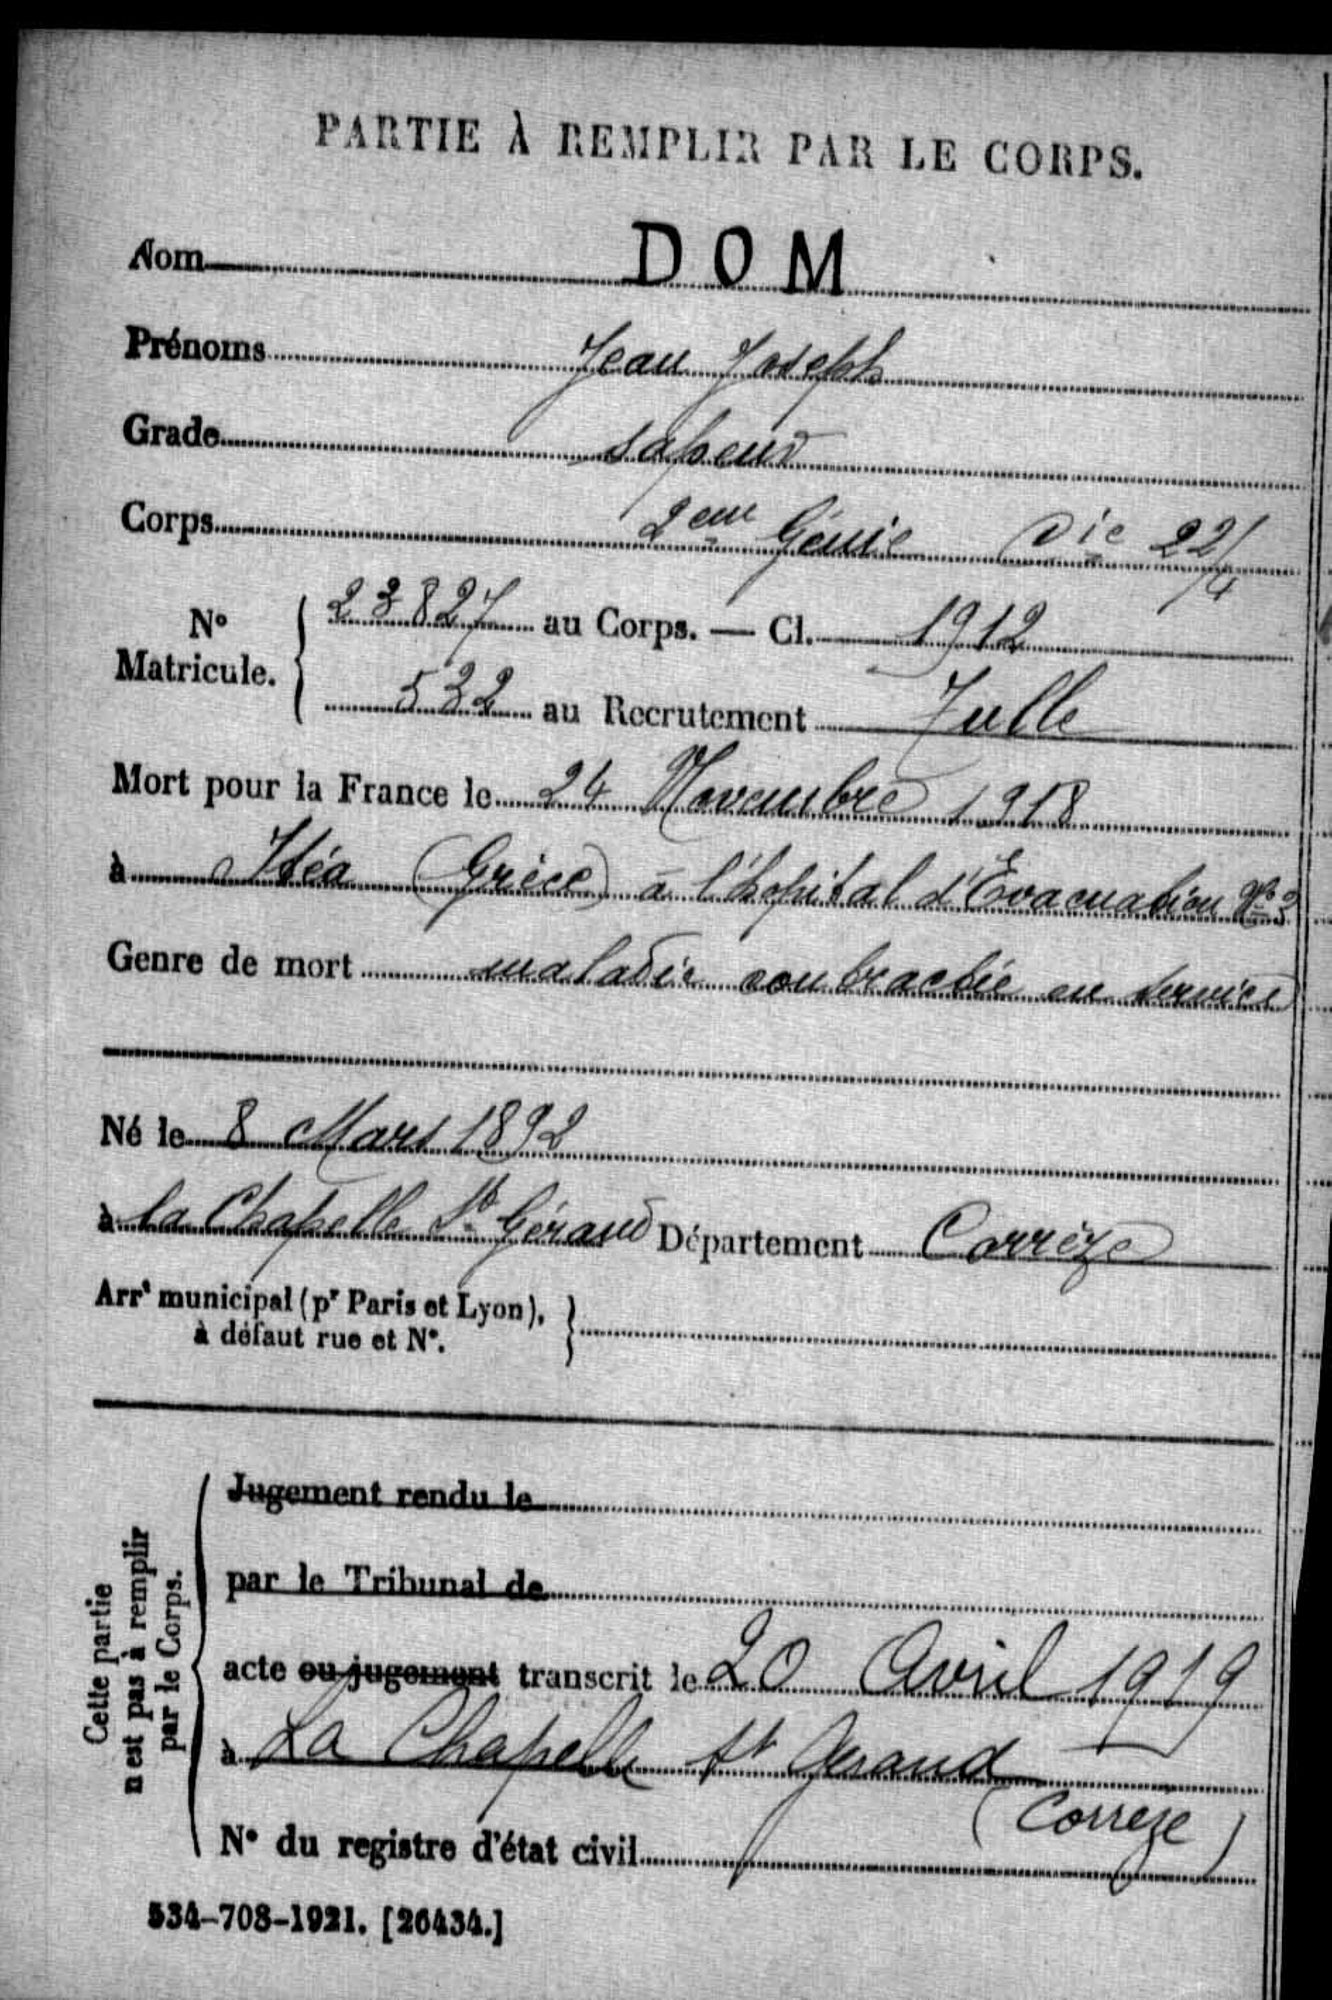 PARTIE À REMPLIR PAR LE CORPS.
Nom DOM
Prénoms Jean Joseph
Grade sapeur
Corps 2eme Génie Cie 22/4
N° Matricule. 23827 au Corps. — Cl. 1912
532 au Recrutement Tulle
Mort pour la France le 24 Novembre 1918
à Itéa (Grèce) à l'hopital d'Evacuation No 3
Genre de mort maladie contractée en service
Né le 8 Mars 1892
à la Chapelle St Géraud Département Corrèze
Arrt municipal (pr Paris et Lyon),
à défaut rue et N°.
Cette partie
n'est pas à remplir
par le Corps.
Jugement rendu le
par le Tribunal de
acte ou jugement transcrit le 20 Avril 1919
à La Chapelle St Geraud
(Correze)
N° du registre d'état civil
534-708-1921. [26434.]